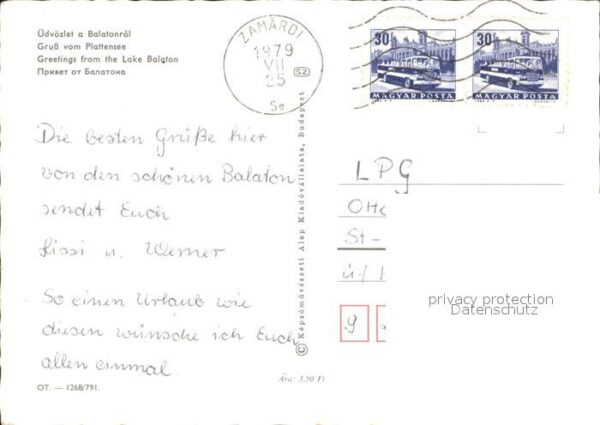 Üdvözlet a Balatonról
Gruß vom Plattensee
Greetings from the Lake Balaton
Привет от Балатона
ZAMÁRDI
1979
VII
25
SZ
Se
30f
MAGYAR POSTA
30f
MAGYAR POSTA
Die besten Grüße hier
von den schönen Balaton
sendet Euch
Sissi u. Werner
So einen Urlaub wie
diesen wünsche ich Euch
allen einmal.
OT. — 1268/791.
Ára: 3.50 Ft
© Képzőművészeti Alap Kiadóvállalata, Budapest
LPG
St -
9
privacy protection
Datenschutz